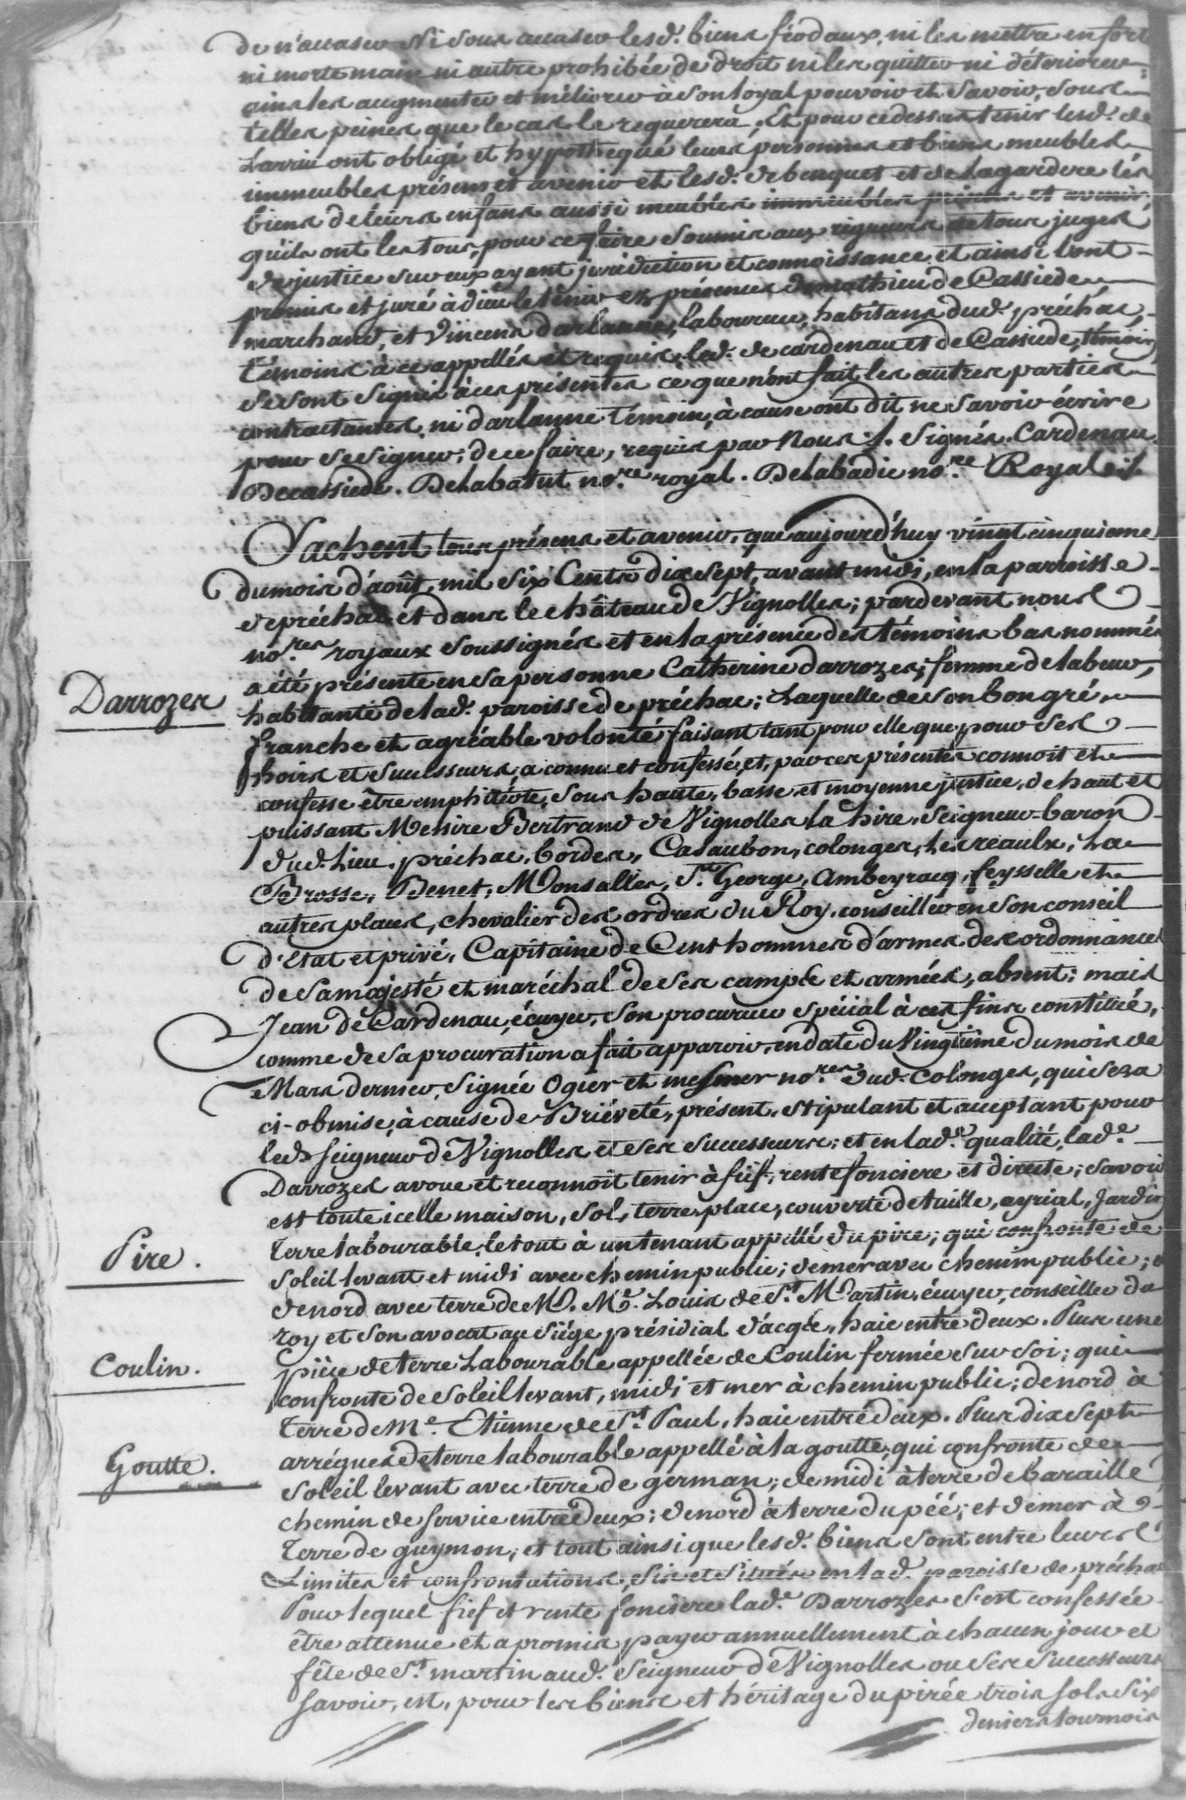 de n'accaser ni sous accaser lesd. biens féodaux, ni les mettre en fort
ni morte main ni autre prohibée de droit ni les quitter ni détériorer
ains les augmenter et méliorer à son loyal pouvoir et savoir, sous
telles peines que le cas le requerera; Et pour ce dessus tenir lesd. de
Larrieu ont obligé et hypothequé leurs personnes et biens meubles
immeubles présens et avenir et lesd. de benquet et de Lagardere les
biens de leurs enfans aussi meubles immeubles présens et avenir,
qu'ils ont les tous, pour ce faire soumis aux rigueurs de tous juges
de justice sur eux ayant juridiction et connoissance et ainsi l'ont
promis et juré à dieu le tenir ez présences de mathieu de Cassiede
marchand, et Vincens darlanne, laboureur, habitans dud. préchac,
témoins à ce appellés et requis, led. de cardenau et de Cassiede, témoin
se sont signés à ces présentes ce que n'ont fait les autres parties
contractantes, ni darlanne témoin, à cause ont dit ne savoir écrire
pour se signer; de ce faire, requis par Nous f. Signés. Cardenau
Decassiede. Delabatut no.re royal. Delabadie no.re Royal
Sachent tous présens et avenir, que aujourd'huy vingt cinquieme
du mois d'août, mil six Cents dix sept, avant midi, en la parroisse
de préchac et dans le château de Vignolles; pardevant nous
no.res royaux soussignés et en la présence des témoins bas nommés
Darrozes
a été présente en sa personne Catherine darrozes; femme de labeur,
habitante de lad. paroisse de préchac; Laquelle de son bon gré
franche et agréable volonté faisant tant pour elle que pour ses
hoirs et successeurs, a connu et confessé, et, par ces présentes connoit et
confesse être emphitéote, sous haute, basse et moyenne justice, de haut et
puissant Messire Bertrand de Vignolles la hire, Seigneur baron
dud. Lieu, préchac, bordes, Casaubon, colonges, les reaulx, La
Brosse, Benet, Monsalles, S.te George, Ambeyracq, feysselle et
autres places, chevalier des ordres du Roy, conseiller en son conseil
d'Etat et privé, Capitaine de Cent hommes d'armes des ordonnances
de sa majesté et maréchal de ses camps et armées, absent; mais
Jean de Cardenau, écuyer, son procureur spécial à ces fins constitué,
comme de sa procuration a fait apparoir, en date du Vingtième du mois de
Mars dernier, Signée Ogier et mesmer no.res dud. Colonges, qui sera
ci-obmise, à cause de Briéveté, présent, stipulant et acceptant pour
led. seigneur de Vignolles et ses successeurs; et en lad.e qualité, lad.e
Darrozes avoue et reconnoit tenir à fief, rente fonciere et directe; savoir
est toute icelle maison, sol, terre, place, couverte de tuille, ayrial, Jardin
Pire.
Terre labourable, le tout à un tenant appellé du pire; qui confronte de
soleil levant et midi avec chemin public; de mer avec chemin public; et
de nord avec terre de M. Me. Louis de St. Martin, écuyer, conseiller du
roy et son avocat au siége présidial d'acqs, haie entre deux. Plus une
Coulin.
pièce de terre Labourable appellée de Coulin fermée sur soi; qui
confronte de soleil levant, midi et mer à chemin public; de nord à
Terre de Me. Etienne de St. Paul, haie entre deux. Plus dix sept
Goutte.
arrégues de terre labourable appellé à la goutte, qui confronte de
soleil levant avec terre de german; de midi à terre de baraille
chemin de service entre deux; de nord à terre du péé; et de mer à
Terre de guymon; et tout ainsi que lesd. biens sont entre leurs
Limites et confrontations, sis et situés en lad. paroisse de préchac
Pour lequel fief et rente fonciere lad.e Darrozes s'est confessée
être attenue et a promis payer annuellement à chacun jour et
fête de St. martin aud. Seigneur de Vignolles ou ses successeurs
savoir, est, pour les biens et héritage du pirée trois sols six
deniers tournois